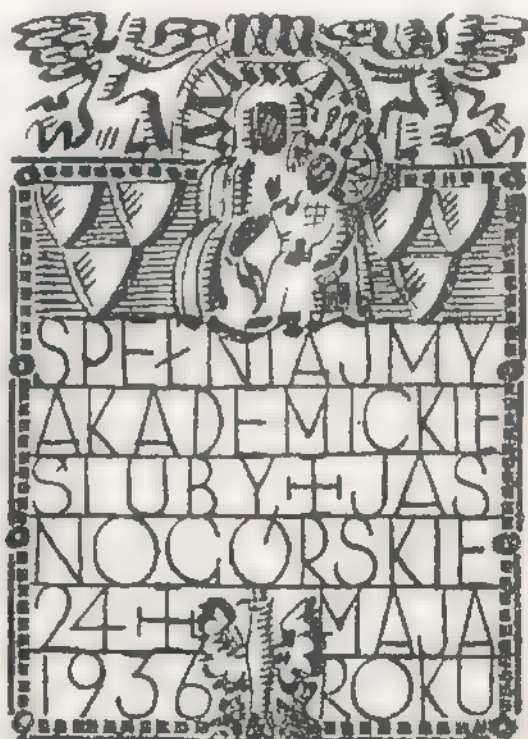 SPEŁNIAJMY
AKADEMICKIE
ŚLUBY + JAS
NOGÓRSKIE
24 + MAJA
1936 ROKU